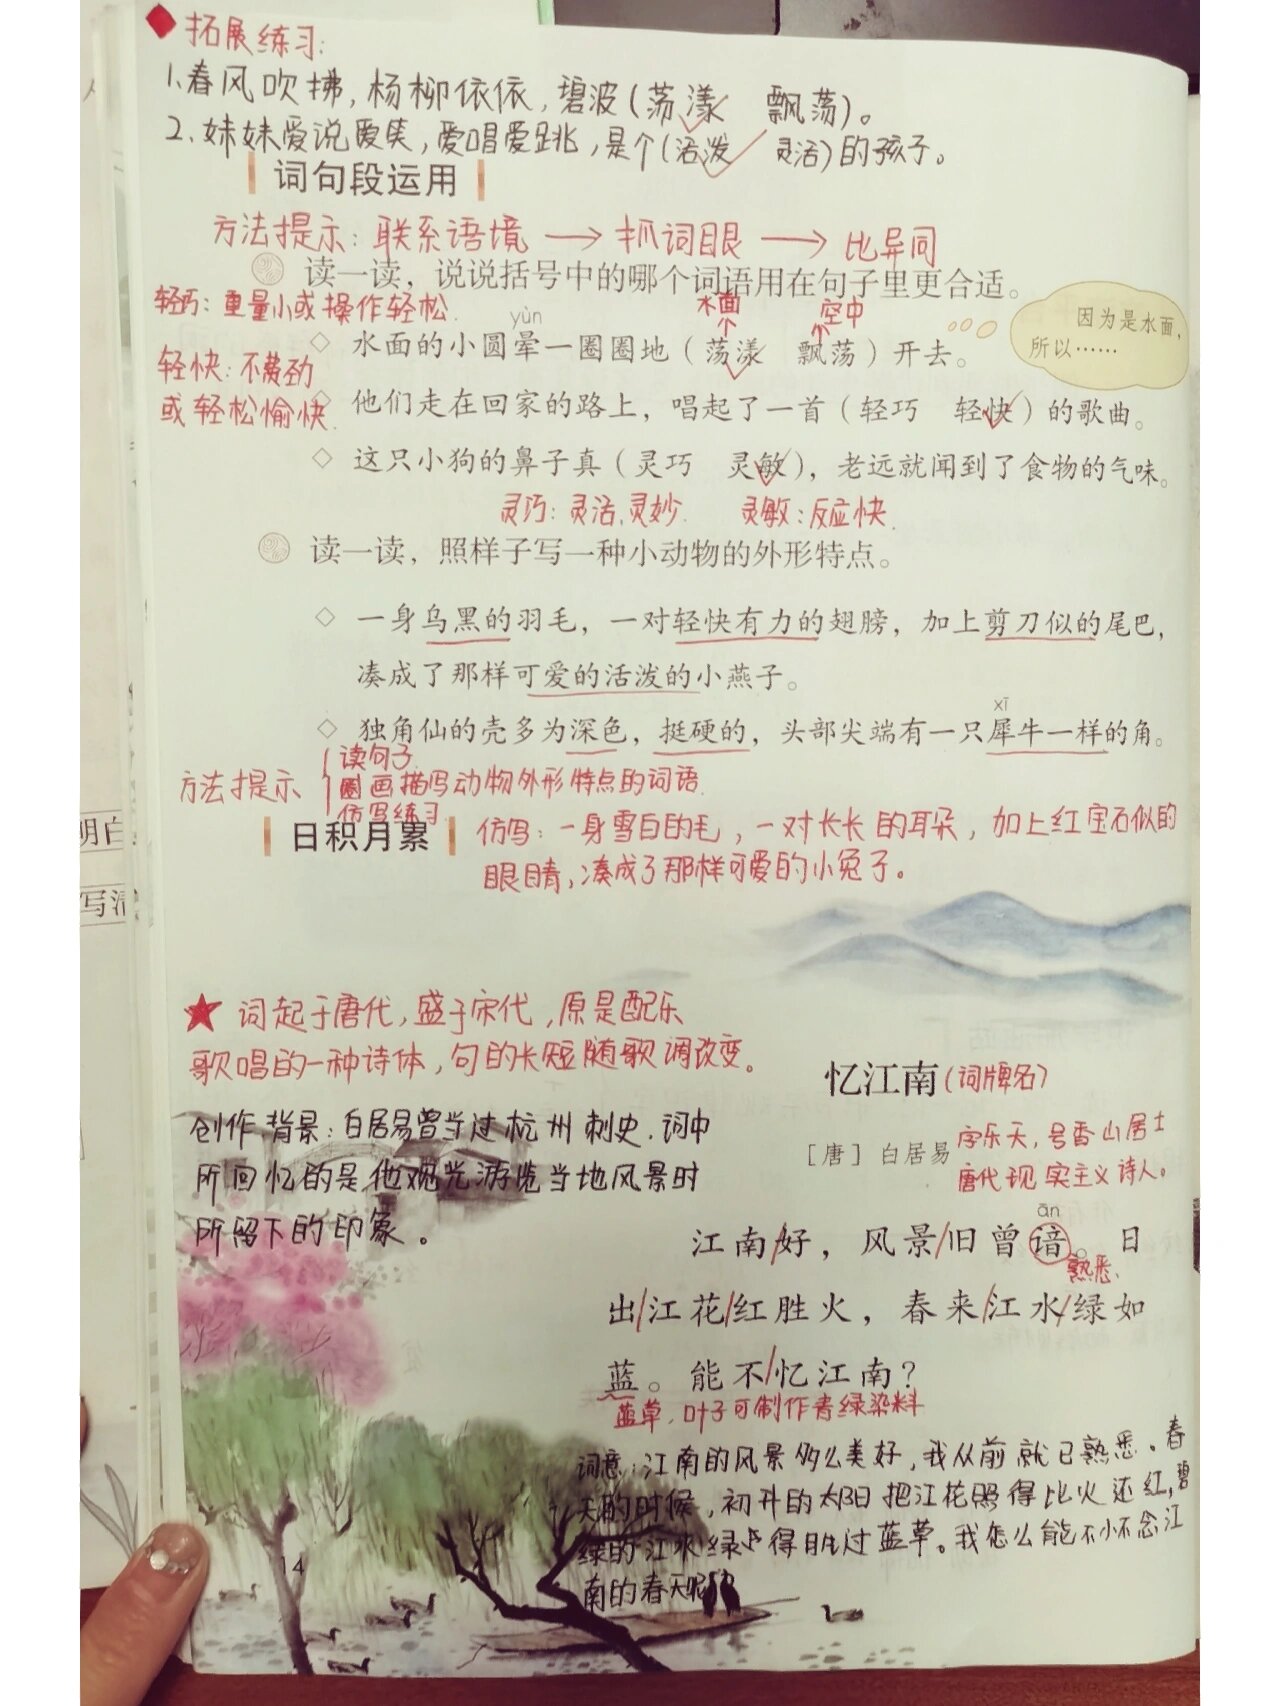 拓展练习:
1.春风吹拂,杨柳依依,碧波(荡漾 飘荡)。
2.妹妹爱说爱笑,爱唱爱跳,是个(活泼 灵活)的孩子。
词句段运用
方法提示:联系语境→抓词眼→比异同
读一读,说说括号中的哪个词语用在句子里更合适。
轻巧:重量小或操作轻松.
水面
空中
yùn
因为是水面,
所以……
水面的小圆晕一圈圈地(荡漾 飘荡)开去。
轻快:不费劲
或轻松愉快.
他们走在回家的路上,唱起了一首(轻巧 轻快)的歌曲。
这只小狗的鼻子真(灵巧 灵敏),老远就闻到了食物的气味。
灵巧:灵活、灵妙. 灵敏:反应快.
读一读,照样子写一种小动物的外形特点。
一身乌黑的羽毛,一对轻快有力的翅膀,加上剪刀似的尾巴,
凑成了那样可爱的活泼的小燕子。
xī
独角仙的壳多为深色,挺硬的,头部尖端有一只犀牛一样的角。
方法提示
读句子
圈画描写动物外形特点的词语
仿写练习
日积月累
仿写:一身雪白的毛,一对长长的耳朵,加上红宝石似的
眼睛,凑成了那样可爱的小兔子。
词起于唐代,盛于宋代,原是配乐
歌唱的一种诗体,句的长短随歌调改变。
忆江南(词牌名)
创作背景:白居易曾当过杭州刺史.词中
所回忆的是他观光游览当地风景时
所留下的印象。
[唐] 白居易
字乐天,号香山居士
唐代现实主义诗人。
ān
江南/好,风景/旧曾谙。日
熟悉.
出/江花/红胜火,春来/江水/绿如
蓝。能不/忆江南?
蓝草,叶子可制作青绿染料
词意:江南的风景多么美好,我从前就已熟悉。春
天的时候,初升的太阳把江花照得比火还红,碧
绿的江水绿得胜过蓝草。我怎么能不怀念江
南的春天呢
14
明白
写清